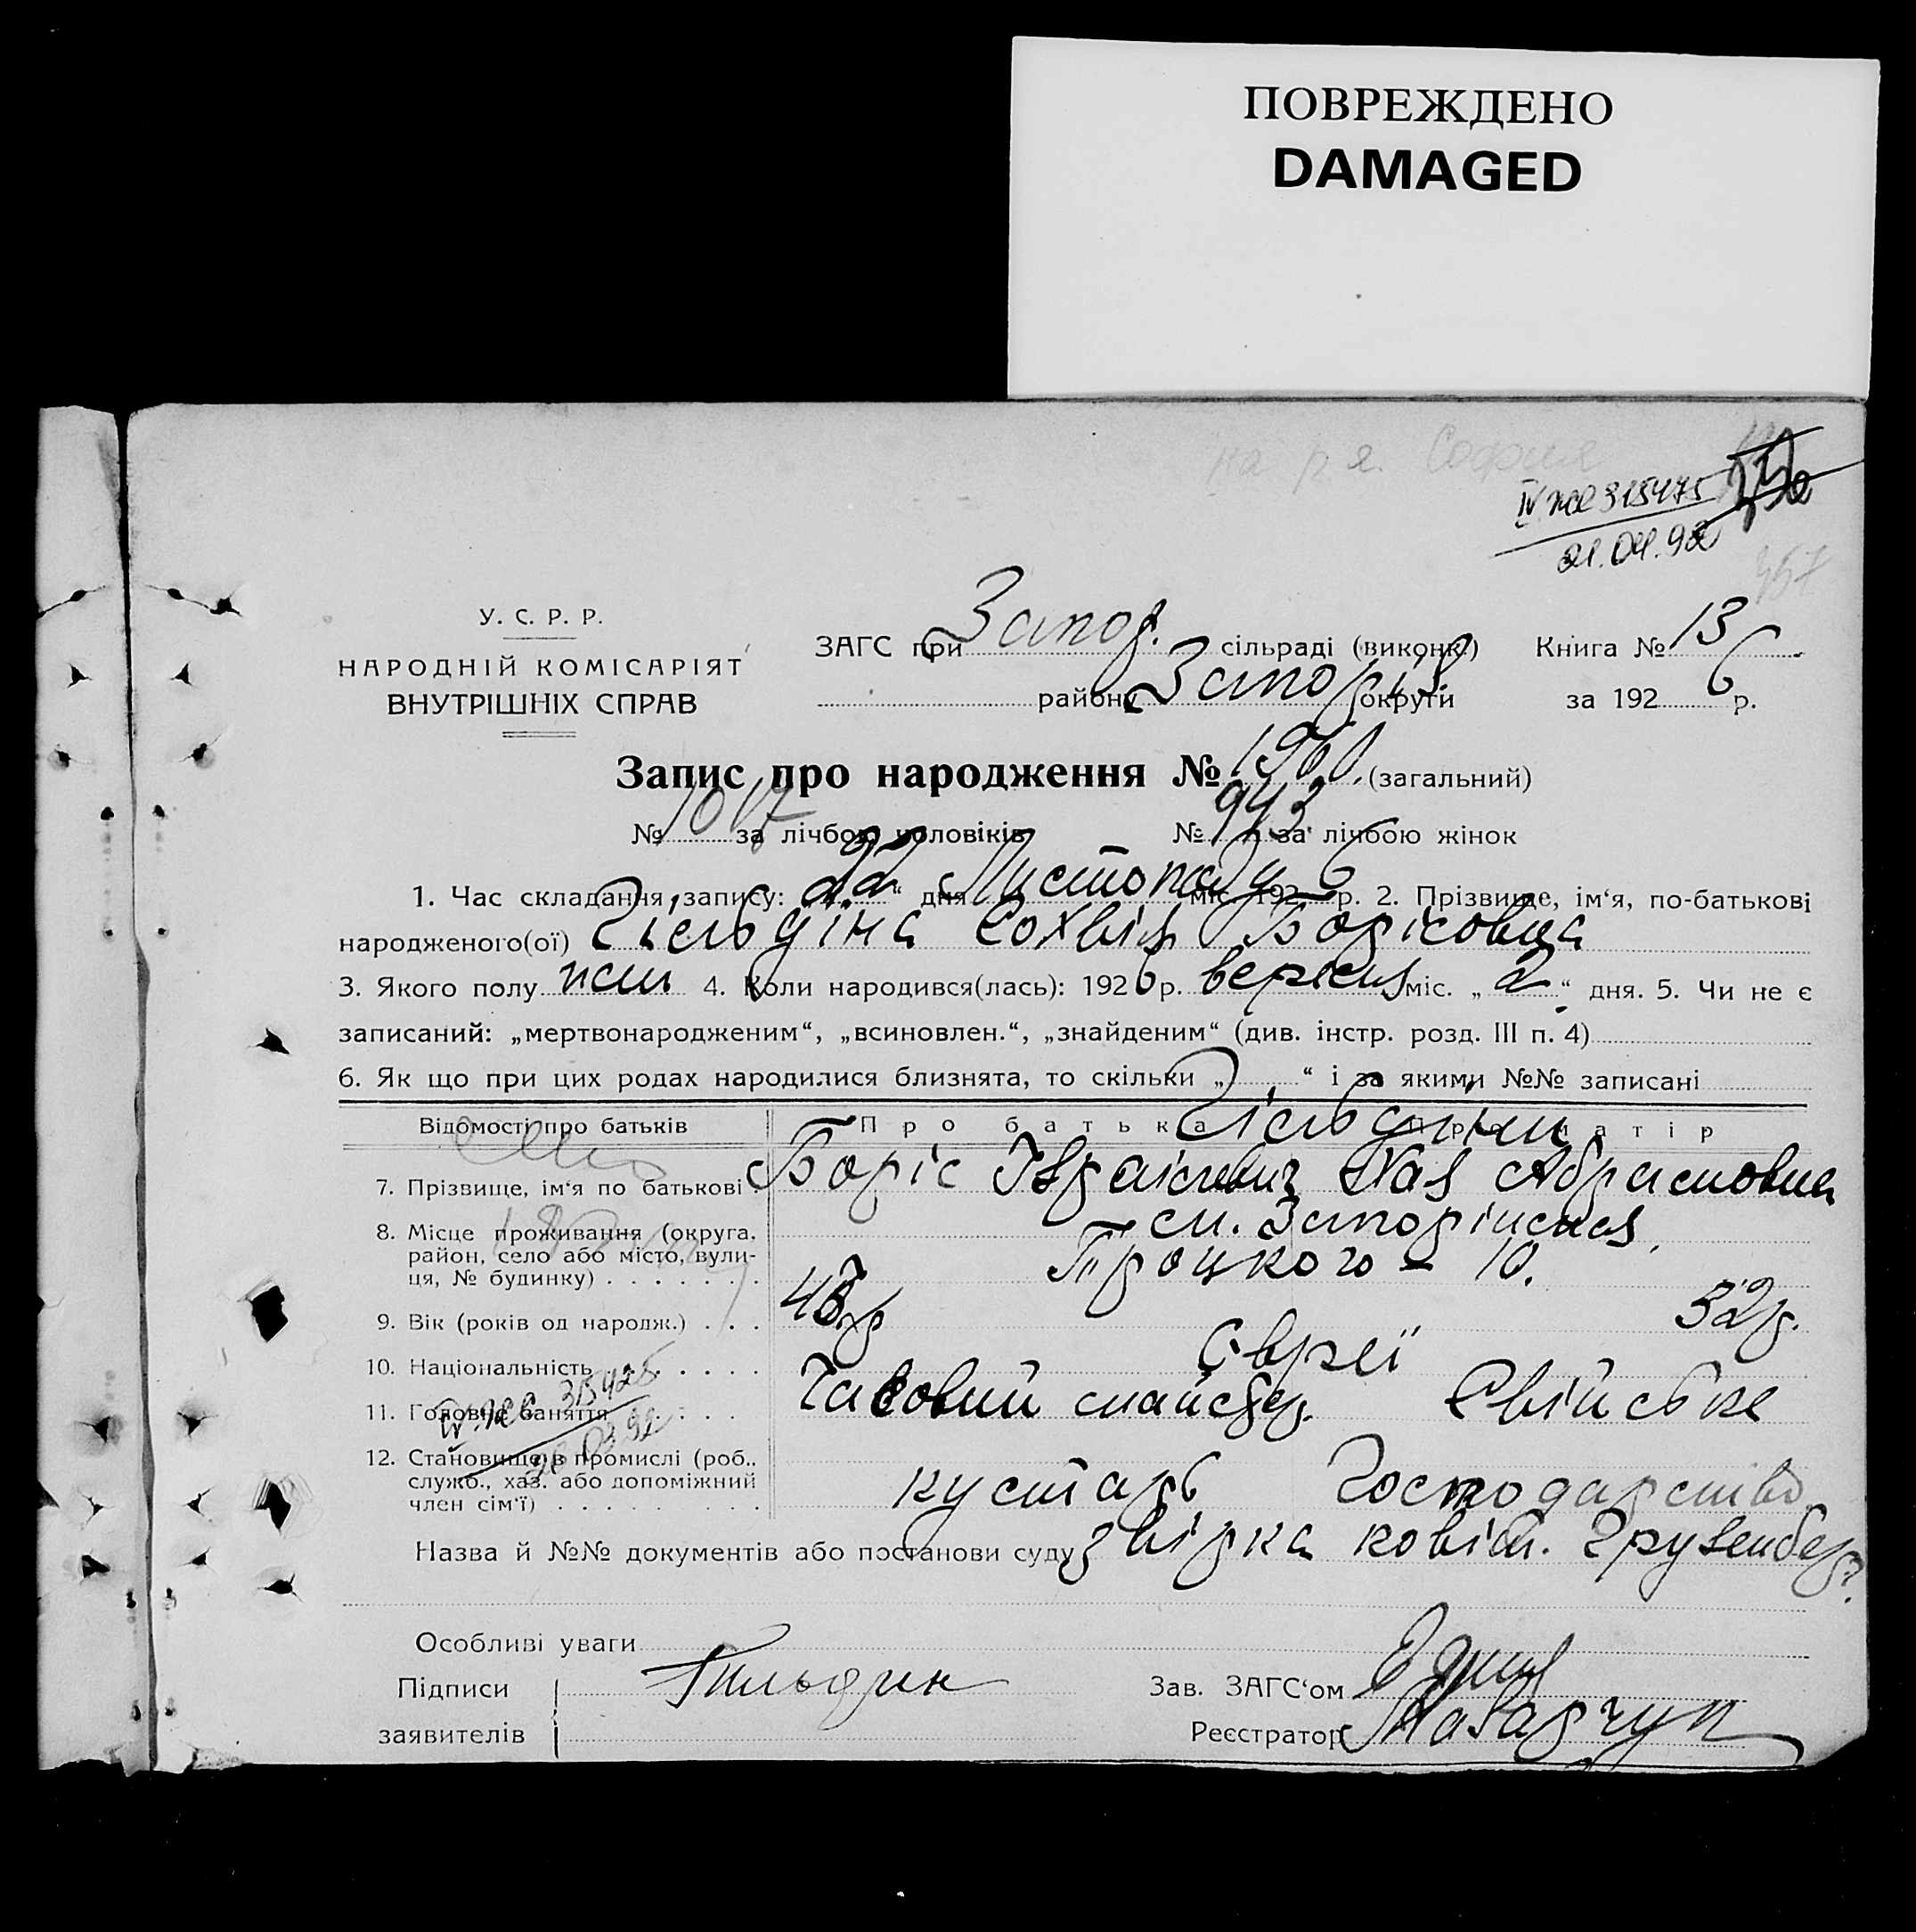 ПОВРЕЖДЕНО
DAMAGED
на р.я. София
IV ЖС 315475
21.04.92
357
У. С. Р. Р.
НАРОДНІЙ КОМІСАРІЯТ
ВНУТРІШНІХ СПРАВ
ЗАГС при Запор. сільраді (виконк.) Книга № 13
району Запоріз. округи за 1926 р.
Запис про народження № 1960 (загальний)
№ 1017 за лічбою чоловіків № 943 за лічбою жінок
1. Час складання запису: „22“ дня Листопаду міс. 1926 р. 2. Прізвище, ім‘я, по-батькові
народженого(ої) Гільдіна Софвія Борісовна
3. Якого полу жін 4. Коли народився(лась): 1926 р. вересня міс. „2“ дня. 5. Чи не є
записаний: „мертвонародженим“, „всиновлен.“, „знайденим“ (див. інстр. розд. III п. 4)
6. Як що при цих родах народилися близнята, то скільки „ “ і за якими №№ записані
Відомості про батьків Про батька Про матір
Гільдіни
7. Прізвище, ім‘я по батькові Боріс Ізраілевич Хая Абрамовна
8. Місце проживання (округа, м. Запоріжжя,
район, село або місто, вули- Троцкого – 10.
ця, № будинку)
9. Вік (років од народж.) 43 р 32 р.
10. Національність Євреї
11. Головне заняття Часовий майстер. Свійське
12. Становище в промислі (роб., кустарь Господарство
служб., хаз. або допоміжний
член сім‘ї)
Назва й №№ документів або постанови суду з вірка повіт. Грузенберг
Особливі уваги
Підписи Гильдин Зав. ЗАГС‘ом
заявителів Реєстратор Назарчук